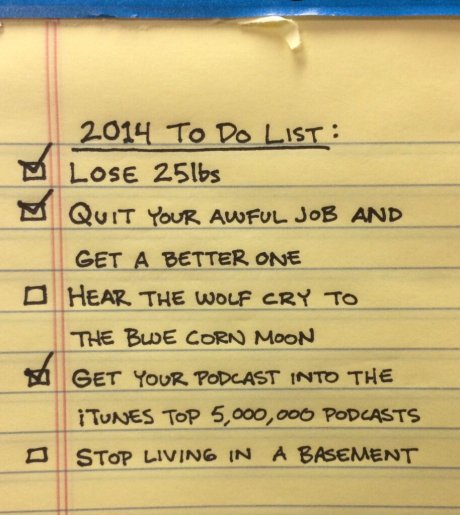 2014 To Do List:
LOSE 25lbs
QUIT YOUR AWFUL JOB AND
GET A BETTER ONE
HEAR THE WOLF CRY TO
THE BLUE CORN MOON
GET YOUR PODCAST INTO THE
iTUNES TOP 5,000,000 PODCASTS
STOP LIVING IN A BASEMENT